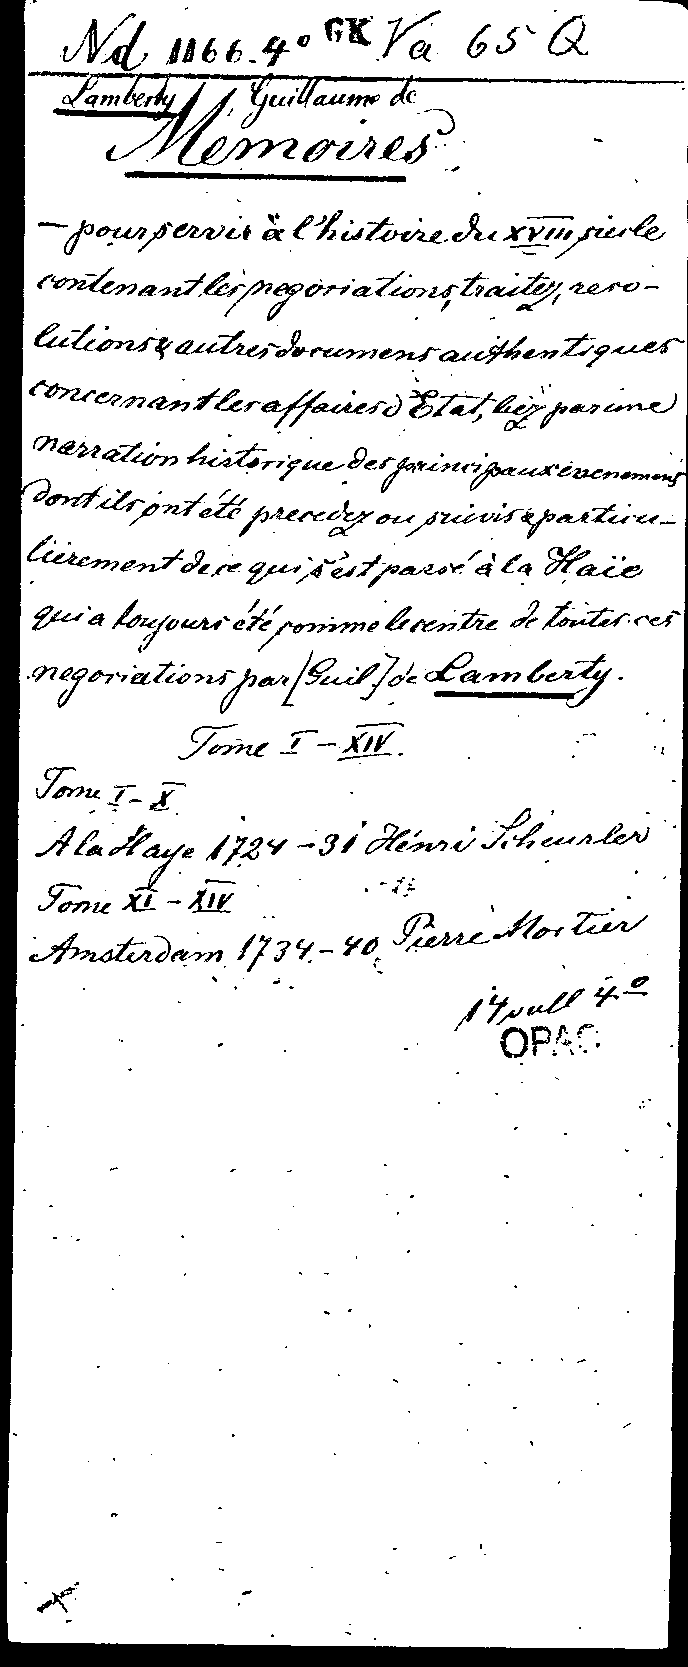 Nd 1166.4° GK Va 65 Q
Lamberty, Guillaume de
Mémoires
— pour servir à l'histoire du XVIII siecle
contenant les negociations, traitez, reso-
lutions & autres documens authentiques
concernant les affaires d'Etat, liez par une
narration historique des principaux evenemens
dont ils ont été precedez ou suivis & particu-
lièrement de ce qui s'est passé à la Haïe
qui a toujours été comme le centre de toutes ces
negociations par [Guil.] de Lamberty.
Tome I – XIV.
Tome I – X
A la Haye 1724 – 31 Hénri Scheurler
Tome XI – XIV
Amsterdam 1734. – 40, Pierre Mortier
14 voll 4°
OPAC